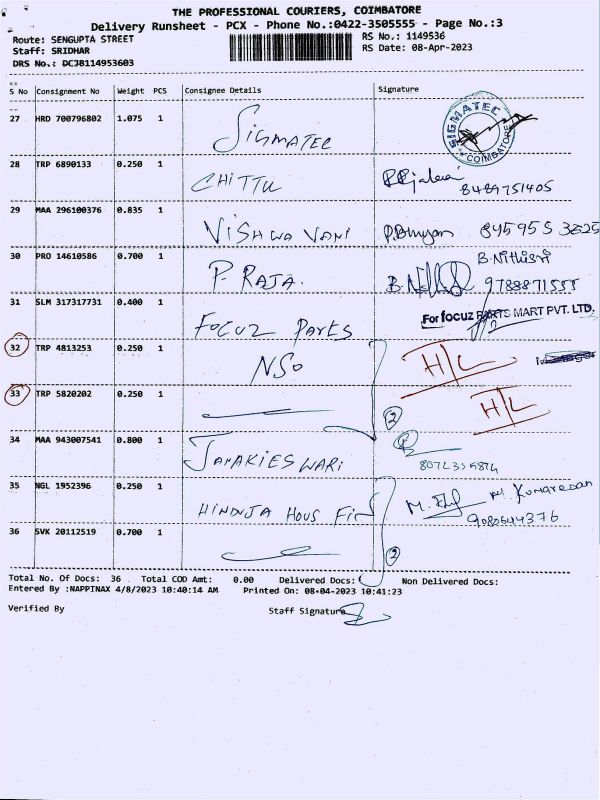 THE PROFESSIONAL COURIERS, COIMBATORE
Delivery Runsheet - PCX - Phone No.:0422-3505555 - Page No.:3
Route: SENGUPTA STREET
RS No.: 1149536
Staff: SRIDHAR
RS Date: 08-Apr-2023
DRS No.: DCJB114953603
S No Consignment No Weight PCS Consignee Details Signature
27 HRD 700796802 1.075 1 SIGMATEC SIGMATEC COIMBATORE
28 TRP 6890133 0.250 1 CHITTU 8489751405
29 MAA 296100376 0.835 1 VISHWA VANI
30 PRO 14610586 0.700 1 P. RAJA. B. Nithisri
9788871555
31 SLM 317317731 0.400 1 FOCUZ PARTS For focuz PARTS MART PVT. LTD.
32 TRP 4813253 0.250 1 NSO H/L
33 TRP 5820202 0.250 1 H/L
2
34 MAA 943007541 0.800 1 JANAKIESWARI
35 NGL 1952396 0.250 1 HINDUJA HOUS FIN M. Kumaresan
9080644376
36 SVK 20112519 0.700 1
2
Total No. Of Docs: 36 Total COD Amt: 0.00 Delivered Docs: Non Delivered Docs:
Entered By :NAPPINAX 4/8/2023 10:40:14 AM Printed On: 08-04-2023 10:41:23
Verified By Staff Signature